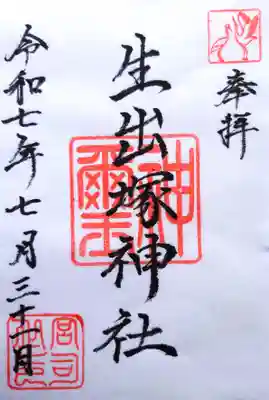 奉拝
生出塚神社
令和七年七月三十一日